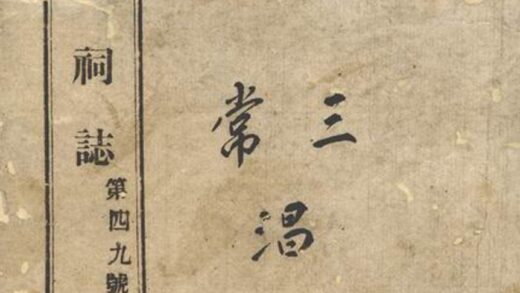 三
常
淐
祠誌
第四九號